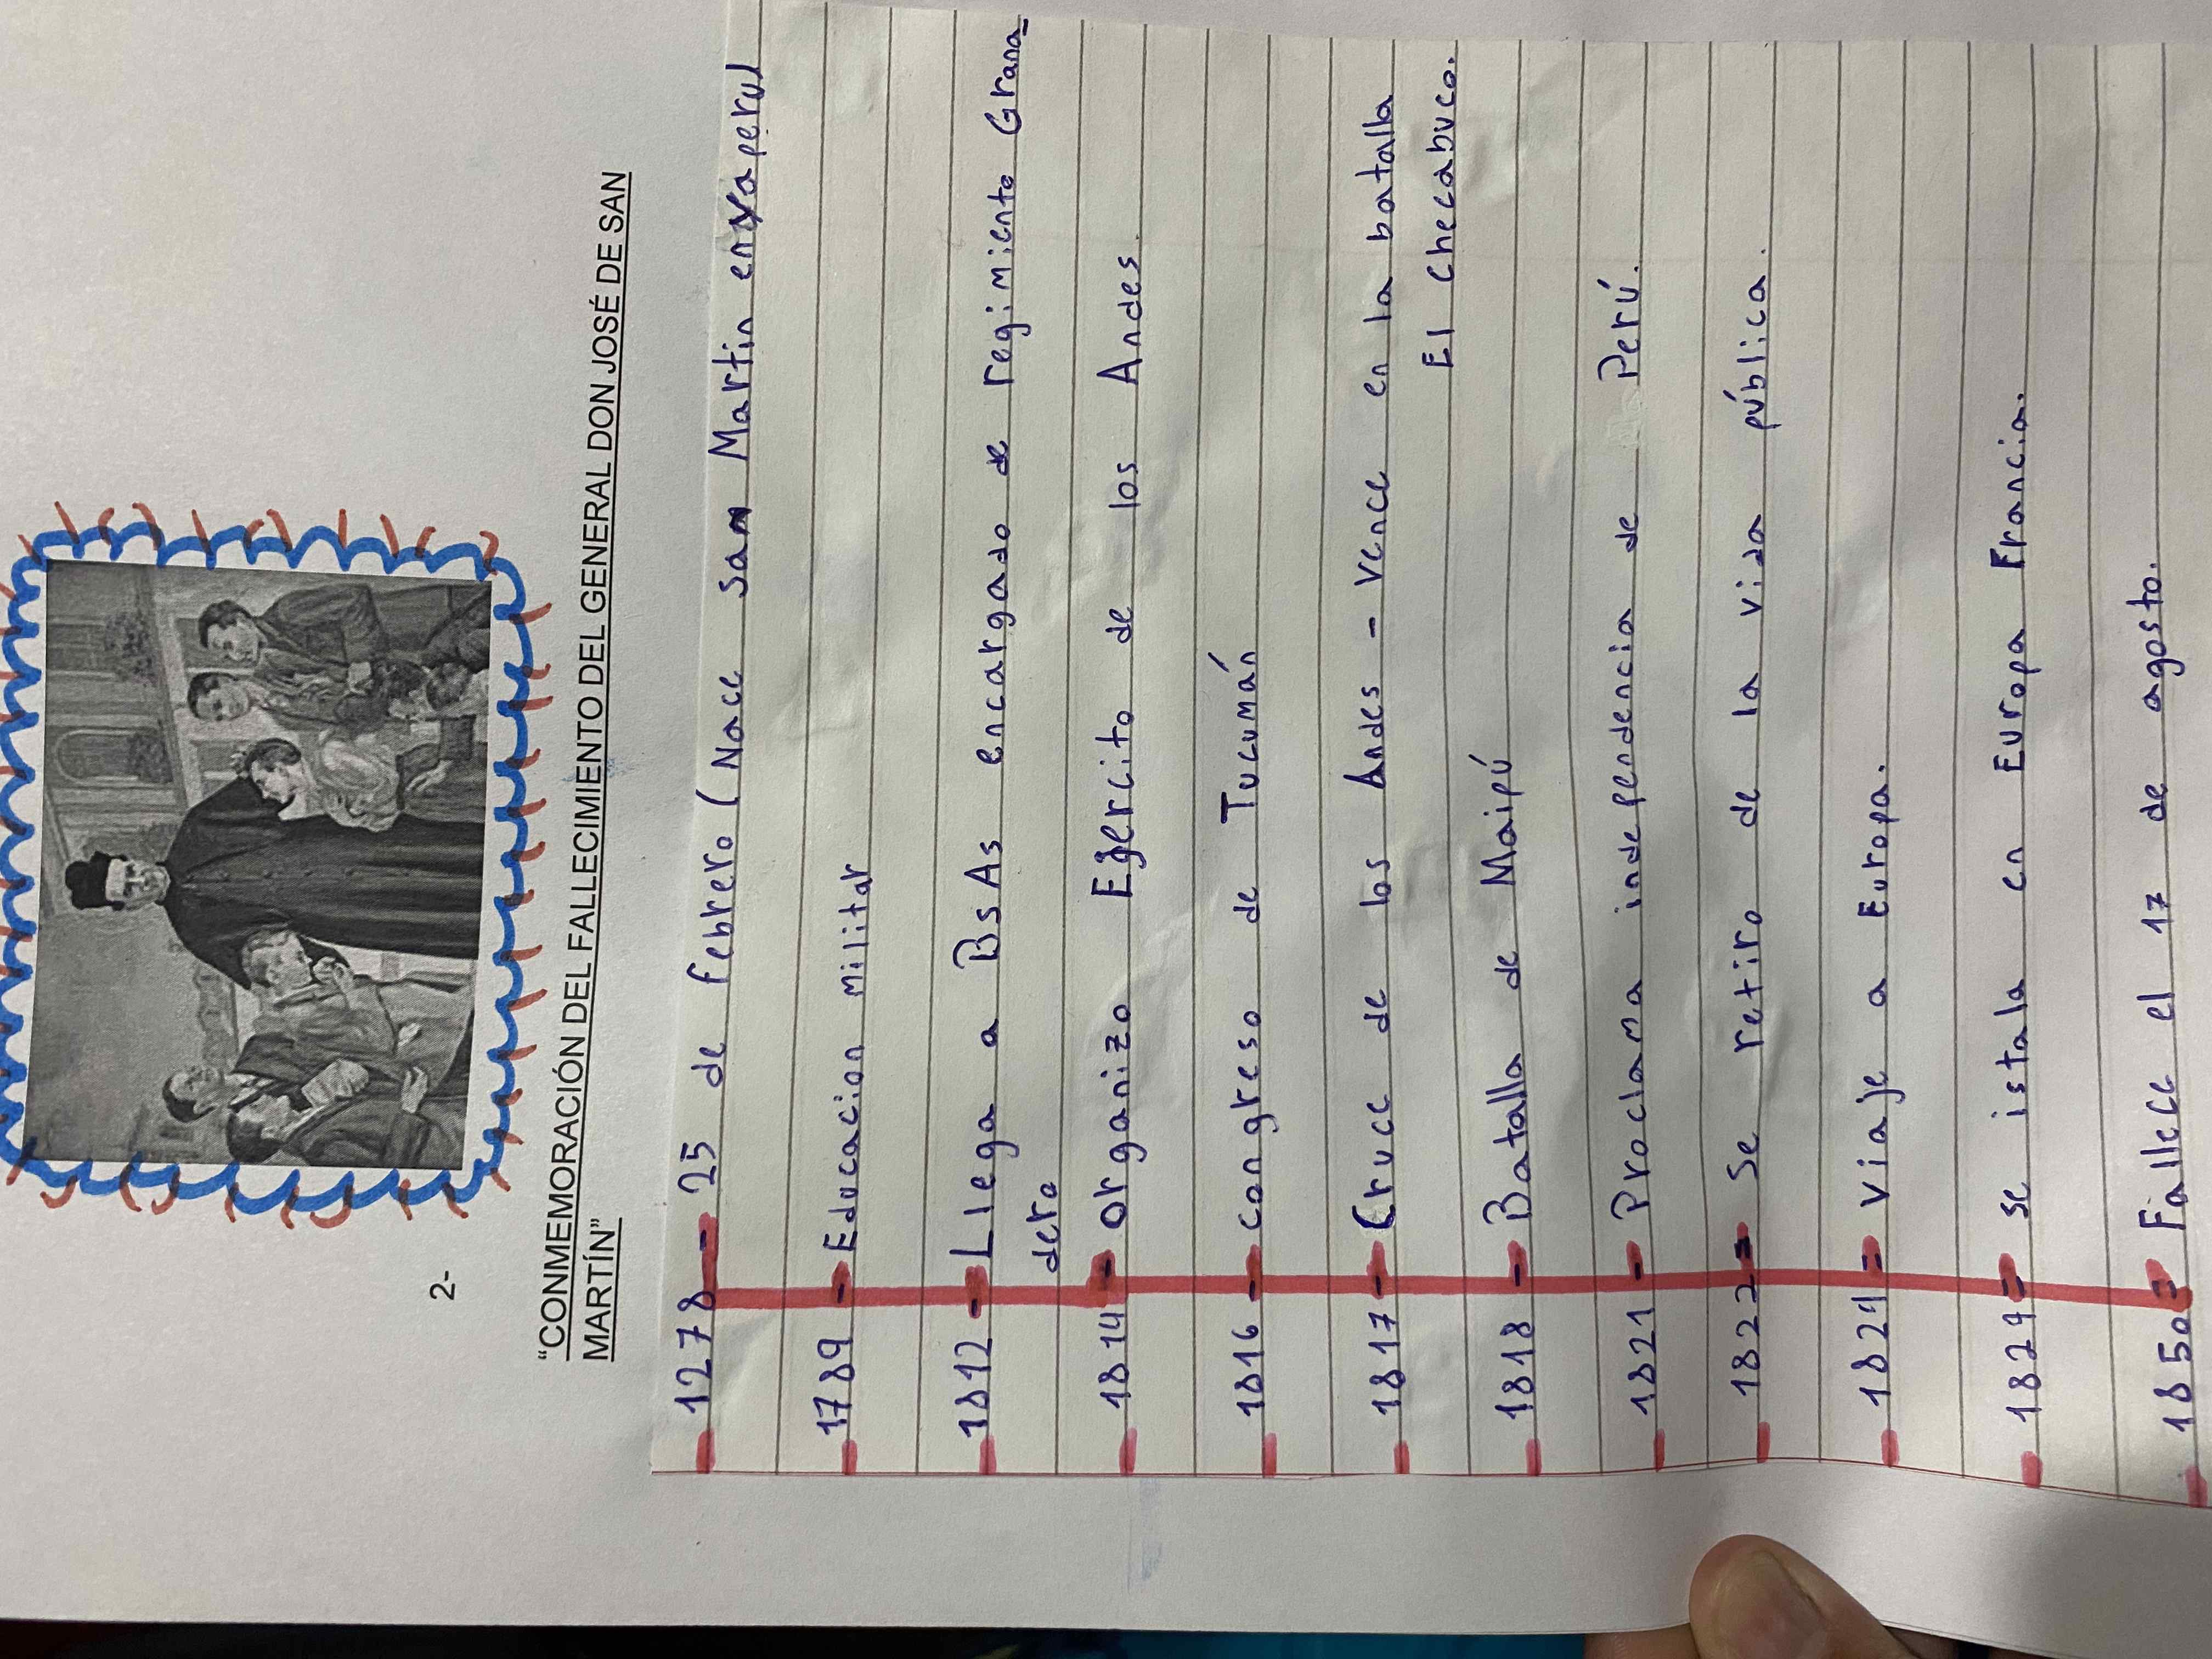 2-
“CONMEMORACIÓN DEL FALLECIMIENTO DEL GENERAL DON JOSÉ DE SAN
MARTÍN”
1278 - 25 de febrero (Nace san Martin en yaperu)
1789 - Educacion militar
1812 - Llega a BsAs encargado de regimiento Grana_
dero
1814 - organizo Egercito de los Andes.
1816 - congreso de Tucumán
1817 - Cruce de los Andes - vence en la batalla
El checabuco.
1818 - Batalla de Maipú
1821 - Proclama independencia de Perú.
1822 = Se retiro de la vida pública.
1824 = viaje a Europa.
1824 = se istala en Europa Francia.
1850 = Fallece el 17 de agosto.